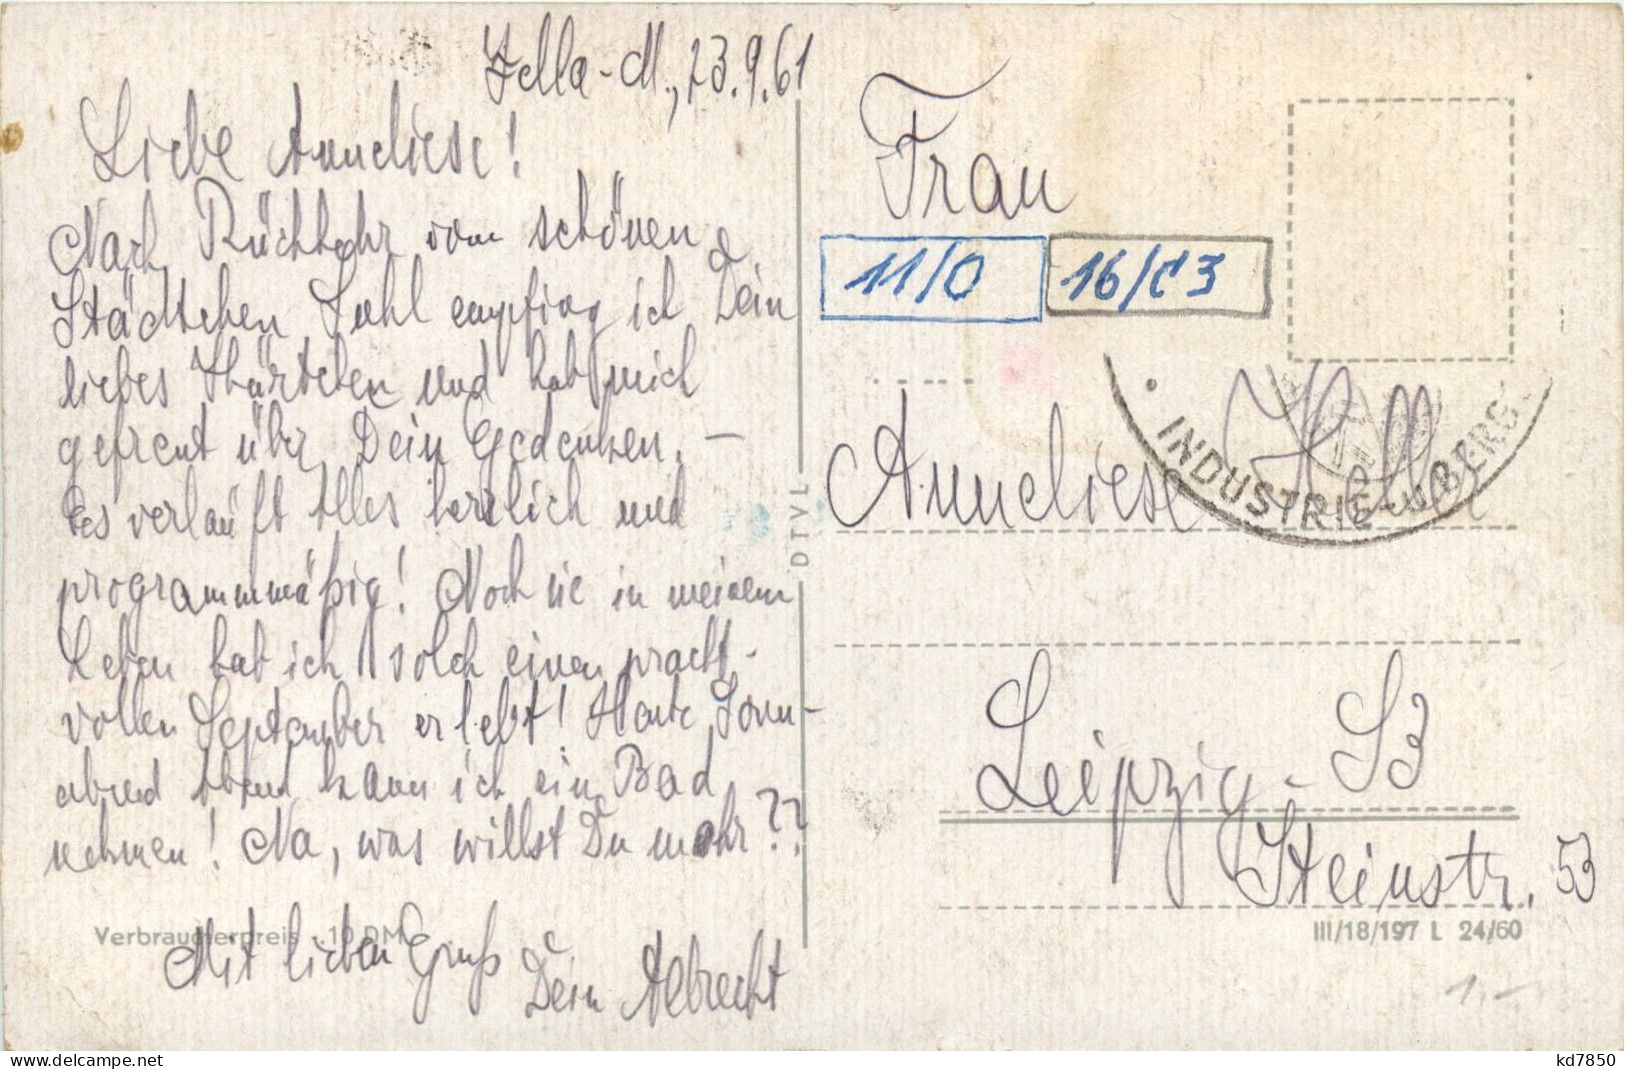 Zella-M., 23.9.61
Liebe Anneliese!
Nach Rückkehr vom schönen
Städtchen Suhl empfing ich Dein
liebes Kärtchen und hab mich
gefreut über Dein Gedenken. —
Es verläuft Alles herrlich und
programmmäßig! Noch nie in meinem
Leben hab ich solch einen pracht-
vollen September erlebt! Heute Sonn-
abend Abend kann ich ein Bad
nehmen! Na, was willst Du mehr??
Mit lieben Gruß
Dein Albrecht
Verbraucherpreis 10 DM
DTVL
Frau
11/0 16/C3
Anneliese Keller
INDUSTRIE-U.BERG
Leipzig-S3
Steinstr. 53
III/18/197 L 24/60
1.-
kd7850